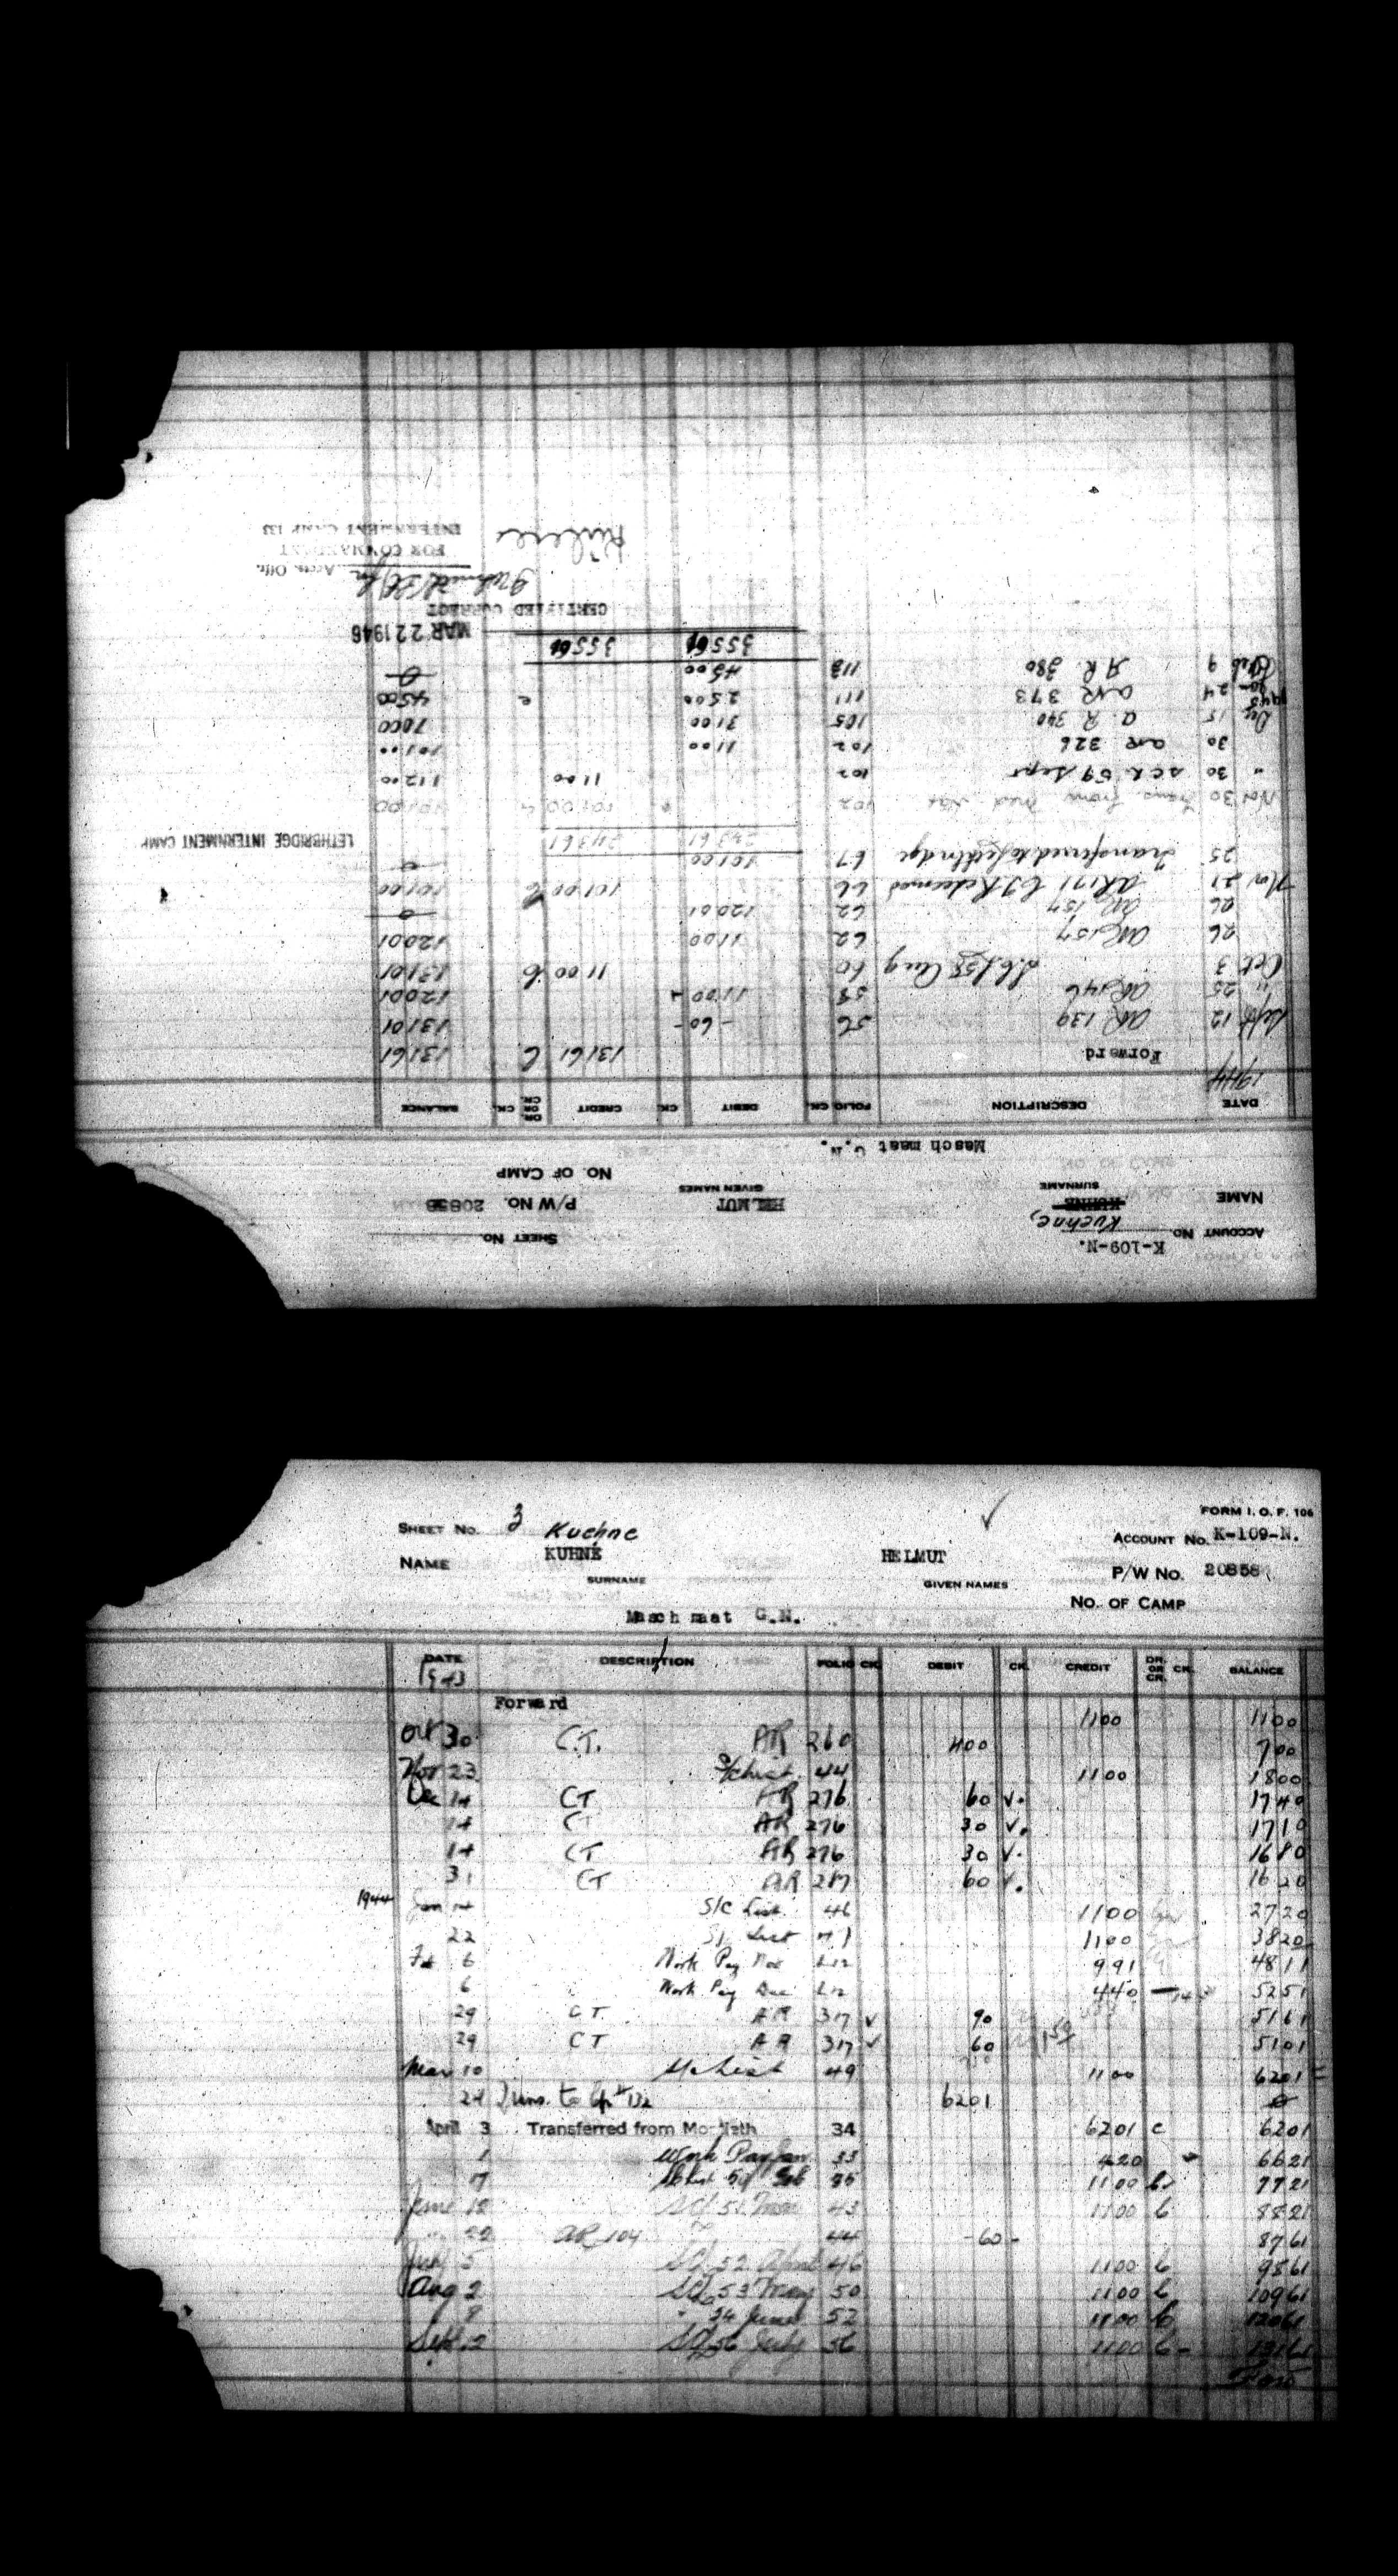 K-109-N.
ACCOUNT No. Kuehne, SHEET No.
NAME KUHNE HELMUT P/W No. 20858
SURNAME GIVEN NAMES
NO. OF CAMP
Masch maat G.N.
DATE DESCRIPTION FOLIO CK. DEBIT CK. CREDIT DR. OR CR. CK. BALANCE
1944
Forward 13161 C 13161
Sept 12 AR 139 56 -60- 13101
" 25 AR 146 58 1100 12001
Oct 3 Aug 60 1100 C 13101
26 AR 157 62 1100 12001
26 AR 157 62 12001 0
Nov 21 AR 171 Redeemed 66 10100 C 10100
25 Transferred to Lethbridge 67 10100 0
24361 24361
LETHBRIDGE INTERNMENT CAMP
Nov 30 Trans. from Med Hat 102 10100 10100
" 30 SCL 59 Sept 102 1100 11200
30 AR 326 102 1100 10100
15 A.R. 340 105 3100 7000
1945
24 AR 373 111 2500 4500
9 A.R. 380 113 4500 0
35561 35561
MAR 22 1946
CERTIFIED CORRECT
Accts. Offr.
FOR COMMANDANT
INTERNMENT CAMP 133
FORM I. O. F. 106
SHEET No. 3 Kuehne ACCOUNT No. K-109-N.
NAME KUHNE HELMUT P/W No. 20858
SURNAME GIVEN NAMES
NO. OF CAMP
Masch maat G.N.
DATE DESCRIPTION FOLIO CK. DEBIT CK. CREDIT DR. OR CR. CK. BALANCE
1943
Forward 1100 1100
Oct 30 C.T. AR 260 400 700
Nov 23 44 1100 1800
Dec 14 CT AR 276 60 1740
14 CT AR 276 30 1710
14 CT AR 276 30 1680
31 CT AR 287 60 1620
1944 Jan 14 S/C List 46 1100 2720
22 List 47 1100 3820
Feb 6 Work Pay Nov L12 991 4811
6 Work Pay Dec L12 440 5251
29 CT AR 317 90 5161
29 CT AR 317 60 5101
Mar 10 List 49 1100 6201
24 Trans. to Cp #132 6201 0
April 3 Transferred from Monteith 34 6201 C 6201
1 Work Pay Jan 33 420 6621
17 35 1100 C 7721
June 12 SCL 51 Mar 43 1100 C 8821
22 AR 104 44 -60- 8761
July 5 SCL 52 April 46 1100 C 9861
Aug 2 SCL 53 May 50 1100 C 10961
8 " 54 June 52 1100 C 12061
Sept 12 SCL 56 July 56 1100 C 13161